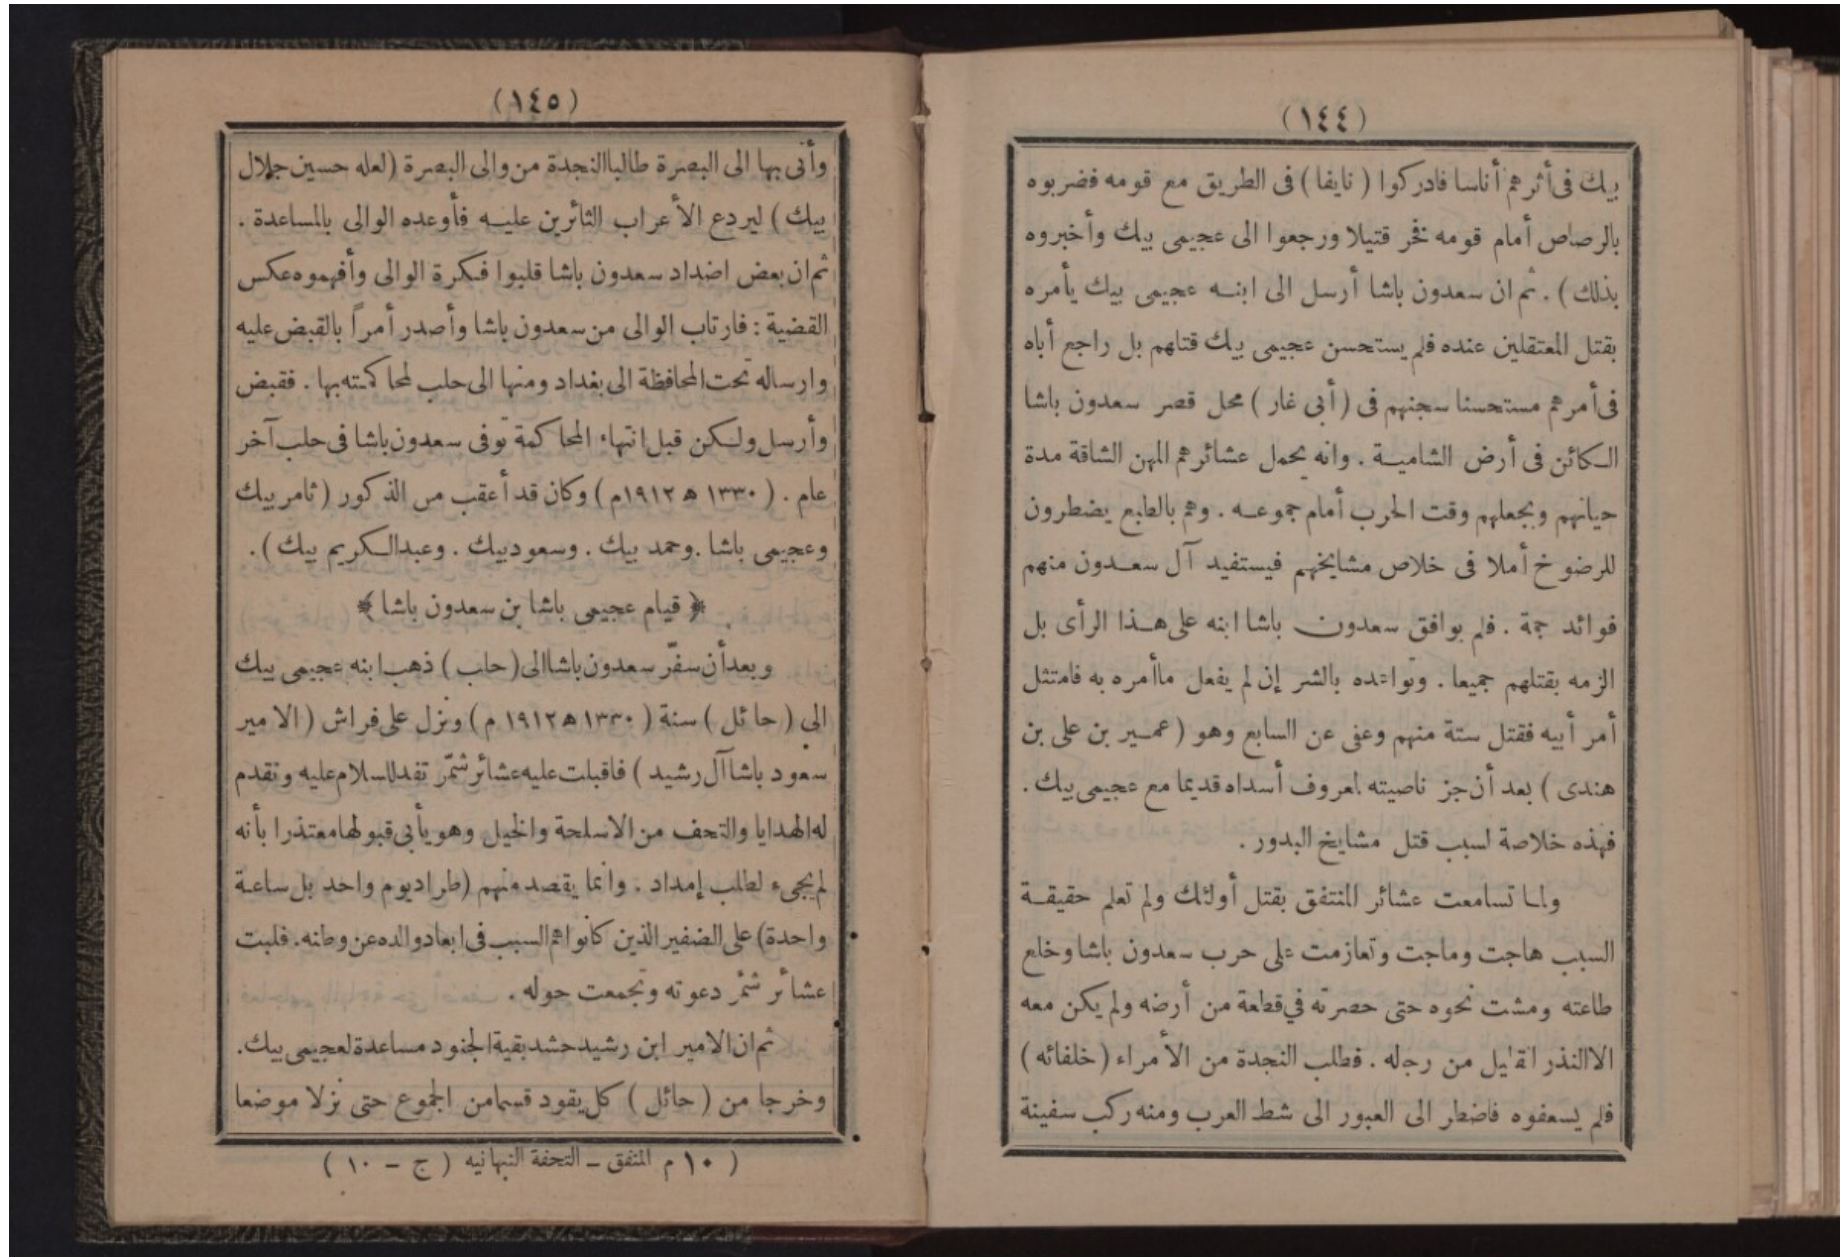 (١٤٤)
بيك فى أثرهم أناسا فادركوا ( نايفا ) فى الطريق مع قومه فضربوه
بالرصاص أمام قومه فخر قتيلا ورجعوا الى عجيمى بيك وأخبروه
بذلك ) . ثم ان سعدون باشا أرسل الى ابنه عجيمى بيك يأمره
بقتل المعتقلين عنده فلم يستحسن عجيمى بيك قتلهم بل راجع أباه
فى أمرهم مستحسنا سجنهم فى ( أبى غار ) محل قصر سعدون باشا
الكائن فى أرض الشامية . وانه يحمل عشائرهم المهن الشاقة مدة
حياتهم ويجعلهم وقت الحرب أمام جموعه . وهم بالطبع يضطرون
للرضوخ أملا فى خلاص مشايخهم فيستفيد آل سعدون منهم
فوائد جمة . فلم يوافق سعدون باشا ابنه على هذا الرأى بل
الزمه بقتلهم جميعا . وتواعده بالشر إن لم يفعل ماأمره به فامتثل
أمر أبيه فقتل ستة منهم وعفى عن السابع وهو ( عمير بن على بن
هندى ) بعد أن جز ناصيته لمعروف أسداه قديما مع عجيمى بيك .
فهذه خلاصة لسبب قتل مشايخ البدور .
ولما تسامعت عشائر المنتفق بقتل أولئك ولم تعلم حقيقة
السبب هاجت وماجت وتعازمت على حرب سعدون باشا وخلع
طاعته ومشت نحوه حتى حصرته في قطعة من أرضه ولم يكن معه
الا النذر القليل من رجاله . فطلب النجدة من الأمراء ( خلفائه )
فلم يسعفوه فاضطر الى العبور الى شط العرب ومنه ركب سفينة
(١٤٥)
وأتى بها الى البصرة طالبا النجدة من والى البصرة ( لعله حسين جلال
بيك ) ليردع الأعراب الثائرين عليه فأوعده الوالى بالمساعدة .
ثم ان بعض اضداد سعدون باشا قلبوا فكرة الوالى وأفهموه عكس
القضية : فارتاب الوالى من سعدون باشا وأصدر أمراً بالقبض عليه
وارساله تحت المحافظة الى بغداد ومنها الى حلب لمحاكمته بها . فقبض
وأرسل ولكن قبل انتهاء المحاكمة توفى سعدون باشا فى حلب آخر
عام . ( ١٣٣٠ ه ١٩١٢م ) وكان قد أعقب من الذكور ( ثامر بيك
وعجيمى باشا . وحمد بيك . وسعود بيك . وعبد الكريم بيك ) .
﴿ قيام عجيمى باشا بن سعدون باشا ﴾
وبعد أن سفّر سعدون باشا الى ( حلب ) ذهب ابنه عجيمى بيك
الى ( حائل ) سنة ( ١٣٣٠ ه ١٩١٢ م ) ونزل على فراش ( الامير
سعود باشا آل رشيد ) فاقبلت عليه عشائر شمّر تفد للسلام عليه وتقدم
له الهدايا والتحف من الاسلحة والخيل وهو يأبى قبولها معتذرا بأنه
لم يجىء لطلب إمداد . وانما يقصد منهم ( طراد يوم واحد بل ساعة
واحدة ) على الضفير الذين كانوا هم السبب فى ابعاد والده عن وطنه . فلبت
عشائر شمّر دعوته وتجمعت حوله .
ثم ان الامير ابن رشيد حشد بقية الجنود مساعدة لعجيمى بيك .
وخرجا من ( حائل ) كل يقود قسما من الجموع حتى نزلا موضعا
( ١٠ م المنتفق ــ التحفة النبهانيه ( ج – ١٠ )